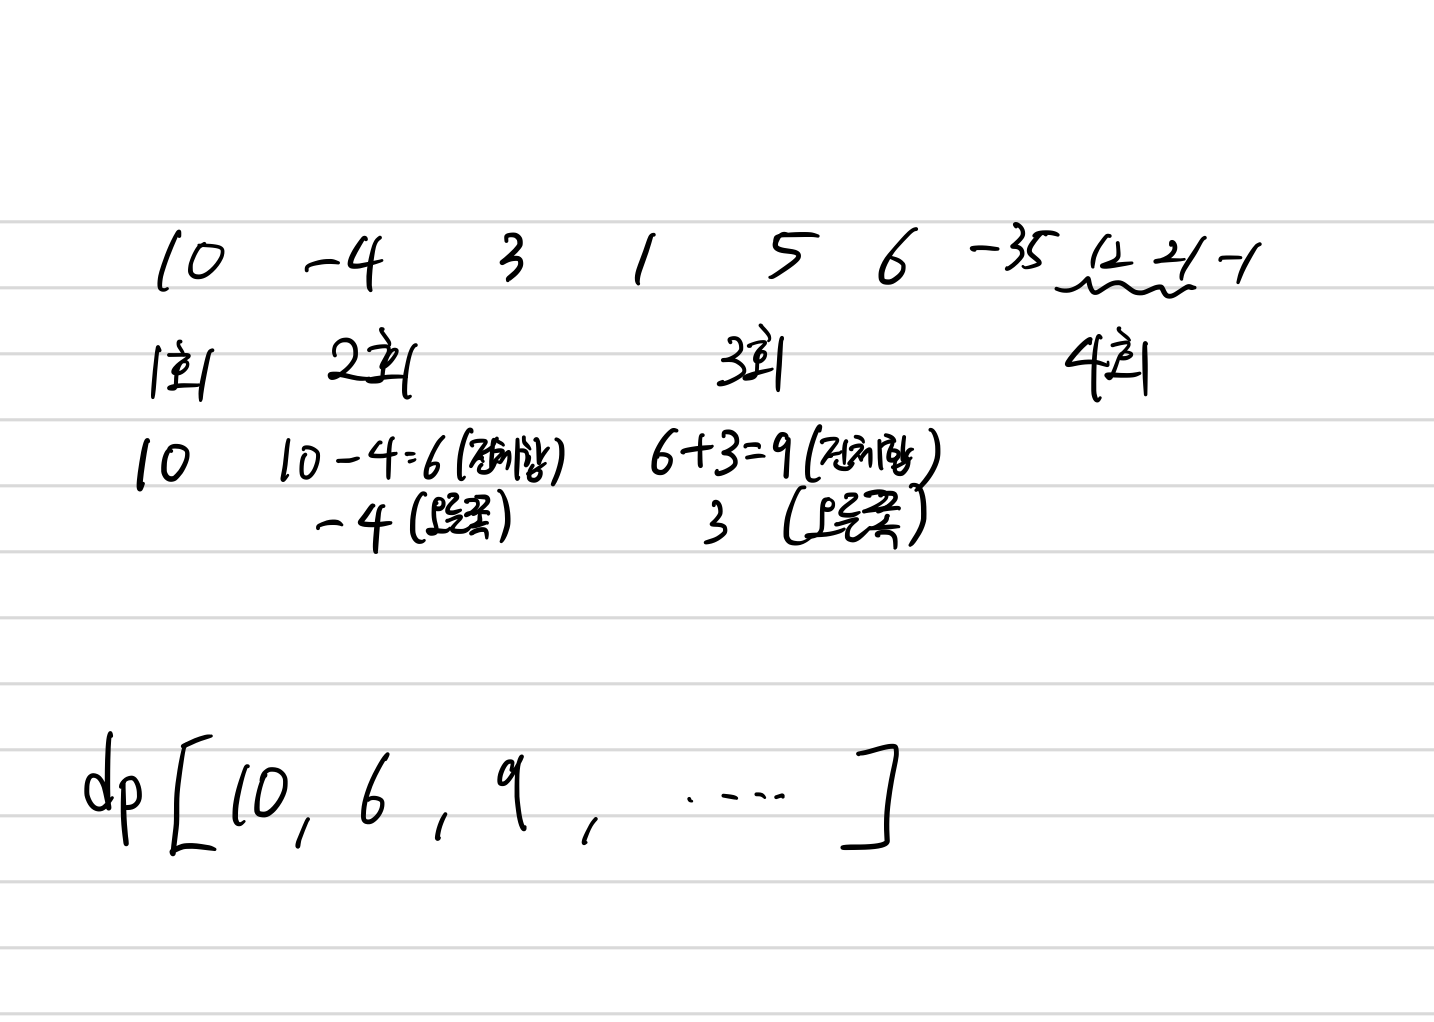 10 -4 3 1 5 6 -35 12 21 -1
1회 2회 3회 4회
10 10-4=6 (전체합) 6+3=9 (전체합)
-4 (오른쪽) 3 (오른쪽)
dp [10, 6, 9, ·····]